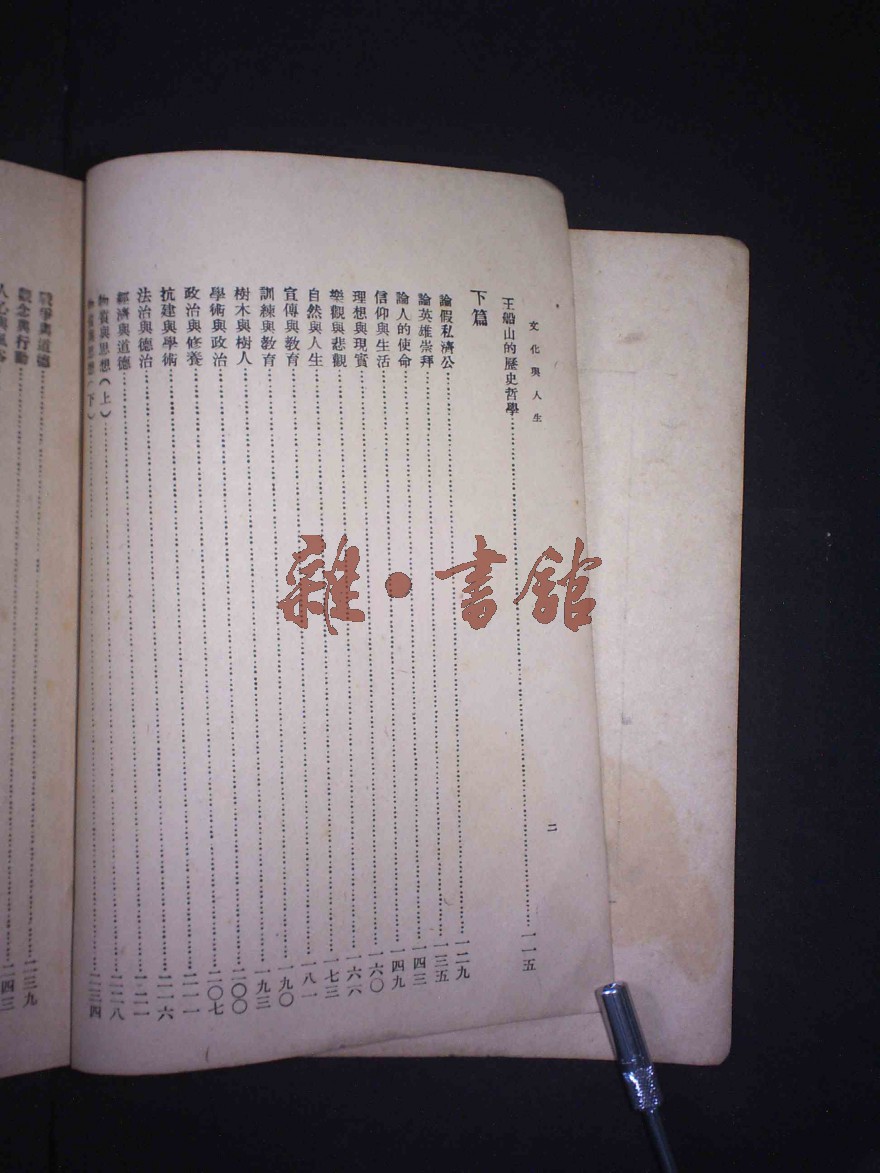 文化與人生
二
王船山的歷史哲學……一一五
下篇
論假私濟公……一二九
論英雄崇拜……一三五
論人的使命……一四三
信仰與生活……一四九
理想與現實……一六〇
樂觀與悲觀……一六六
自然與人生……一七三
宣傳與教育……一八一
訓練與教育……一九〇
樹木與樹人……一九三
學術與政治……二〇〇
政治與修養……二〇七
抗建與學術……二一一
法治與德治……二一六
經濟與道德……二二一
物質與思想(上)……二二八
物質與思想(下)……二三四
戰爭與道德……二三九
觀念與行動……二四三
雜·書館